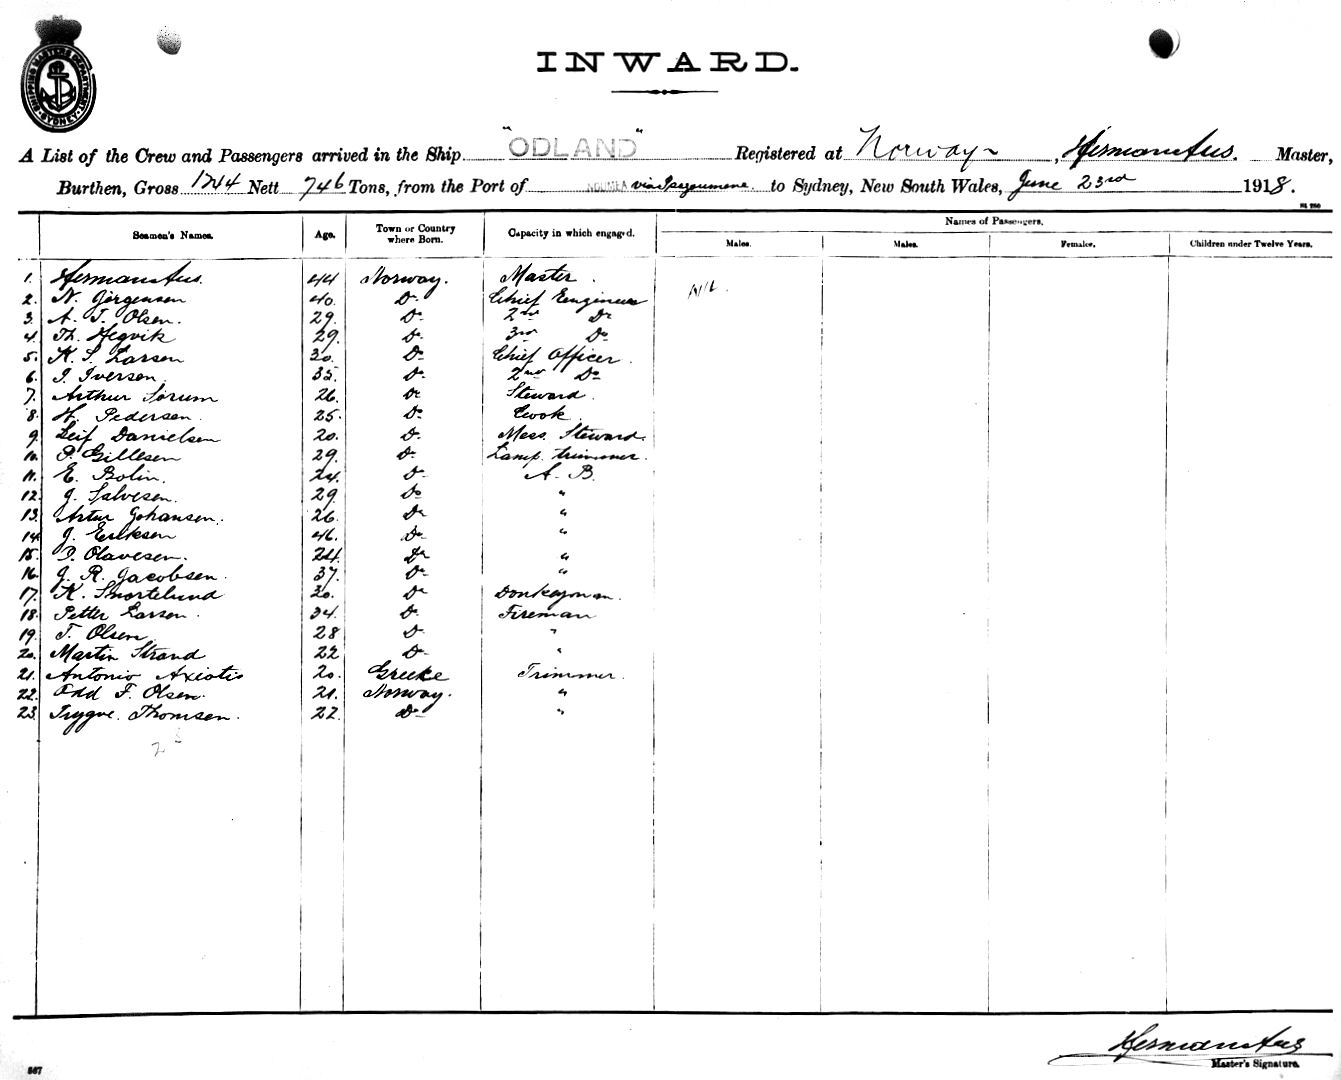 SHIPPING MASTER'S DEPARTMENT SYDNEY
INWARD.
A List of the Crew and Passengers arrived in the Ship "ODLAND" Registered at Norway, Hermansflus. Master,
Burthen, Gross 1244 Nett 746 Tons, from the Port of NOUMEA via to Sydney, New South Wales, June 23rd 1918.
Seamen's Names. Age. Town or Country where Born. Capacity in which engaged. Names of Passengers.
Males. Males. Females. Children under Twelve Years.
1. 44 Norway. Master. Nil.
2. N. Jörgensen 40. Do Chief Eengineer
3. A. J. Olsen. 29. Do 2nd Do
4. Th. Hegvik 29. Do 3rd Do
5. K. S. Larsen 30. Do Chief Officer.
6. I. Iversen. 35. Do 2nd Do
7. Arthur Sörum 26. Do Steward.
8. H. Pedersen. 25. Do Cook
9. Leif Danielsen 20. Do Mess. Steward.
10. P. Gillesen 29. Do Lamp. trimmer.
11. E. Bolin. 24. Do A. B.
12. J. Salvesen. 29. Do "
13. Artur Johansen. 26. Do "
14. J. Eriksen 46. Do "
15. O. Olavesen. 24. Do "
16. J. R. Jacobsen. 37. Do "
17. K. Snortelund 30. Do Donkeyman.
18. Petter Larsen. 34. Do Fireman
19. T. Olsen 28 Do "
20. Martin Strand 22 Do "
21. Antonio Axiotis 20. Greeke Trimmer.
22. Odd F. Olsen. 21. Norway. "
23. Trygve. Thomsen. 22. Do "
Master's Signature.
567